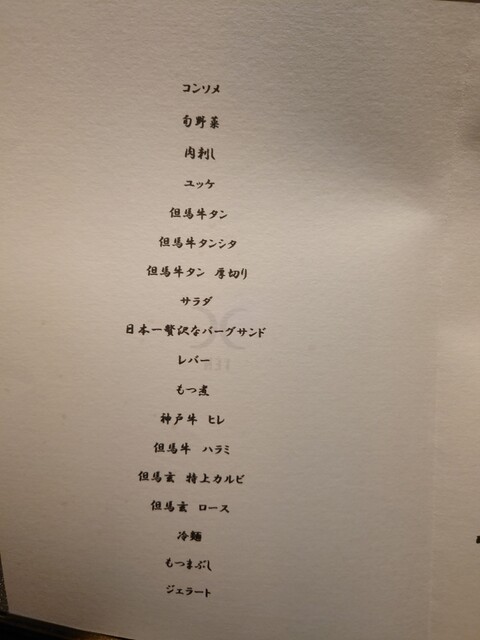 コンソメ
旬野菜
肉刺し
ユッケ
但馬牛タン
但馬牛タンシタ
但馬牛タン 厚切り
サラダ
日本一贅沢なバーグサンド
レバー
もつ煮
神戸牛 ヒレ
但馬牛 ハラミ
但馬玄 特上カルビ
但馬玄 ロース
冷麺
もつまぶし
ジェラート